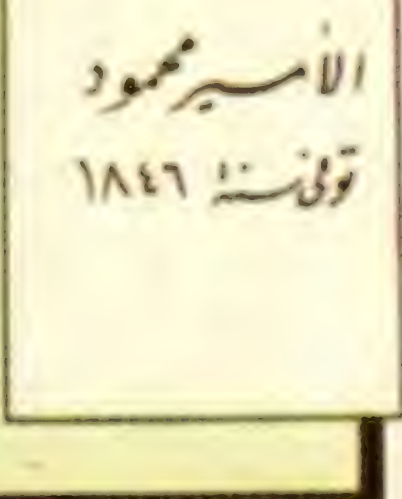 الأمير محمود
توفى سنة ١٨٤٦